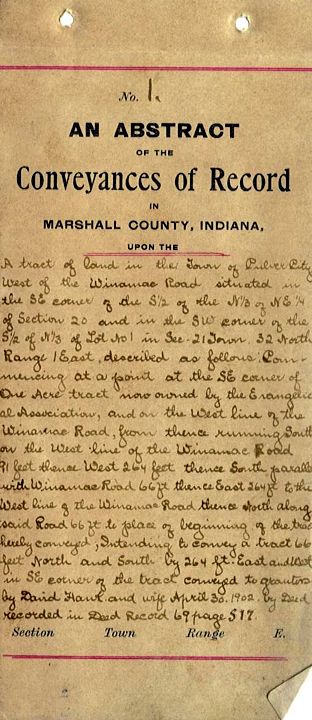 No. 1.
AN ABSTRACT
OF THE
Conveyances of Record
IN
MARSHALL COUNTY, INDIANA,
UPON THE
A tract of land in the Town of Culver City
West of the Winamac Road situated in
the SE corner of the S½ of the N⅓ of NE¼
of Section 20 and in the SW corner of the
S½ of N⅓ of Lot No 1 in Sec. 21 Town. 32 North
Range 1 East, described as follows: Com-
mencing at a point at the SE corner of
One Acre tract now owned by the Evangelic
al Association, and on the West line of the
Winamac Road, from thence running South
on the West line of the Winamac Road
91 feet thence West 264 feet thence South parallel
with Winamac Road 66 ft thence East 264 ft to the
West line of the Winamac Road thence North along
said Road 66 ft to place of beginning of the tract
hereby conveyed, Intending to convey a tract 66
feet North and South by 264 ft. East and West
in SE corner of the tract conveyed to grantors
by David Hawk and wife April 30. 1902. by Deed
recorded in Deed Record 69 page 517.
Section Town Range E.